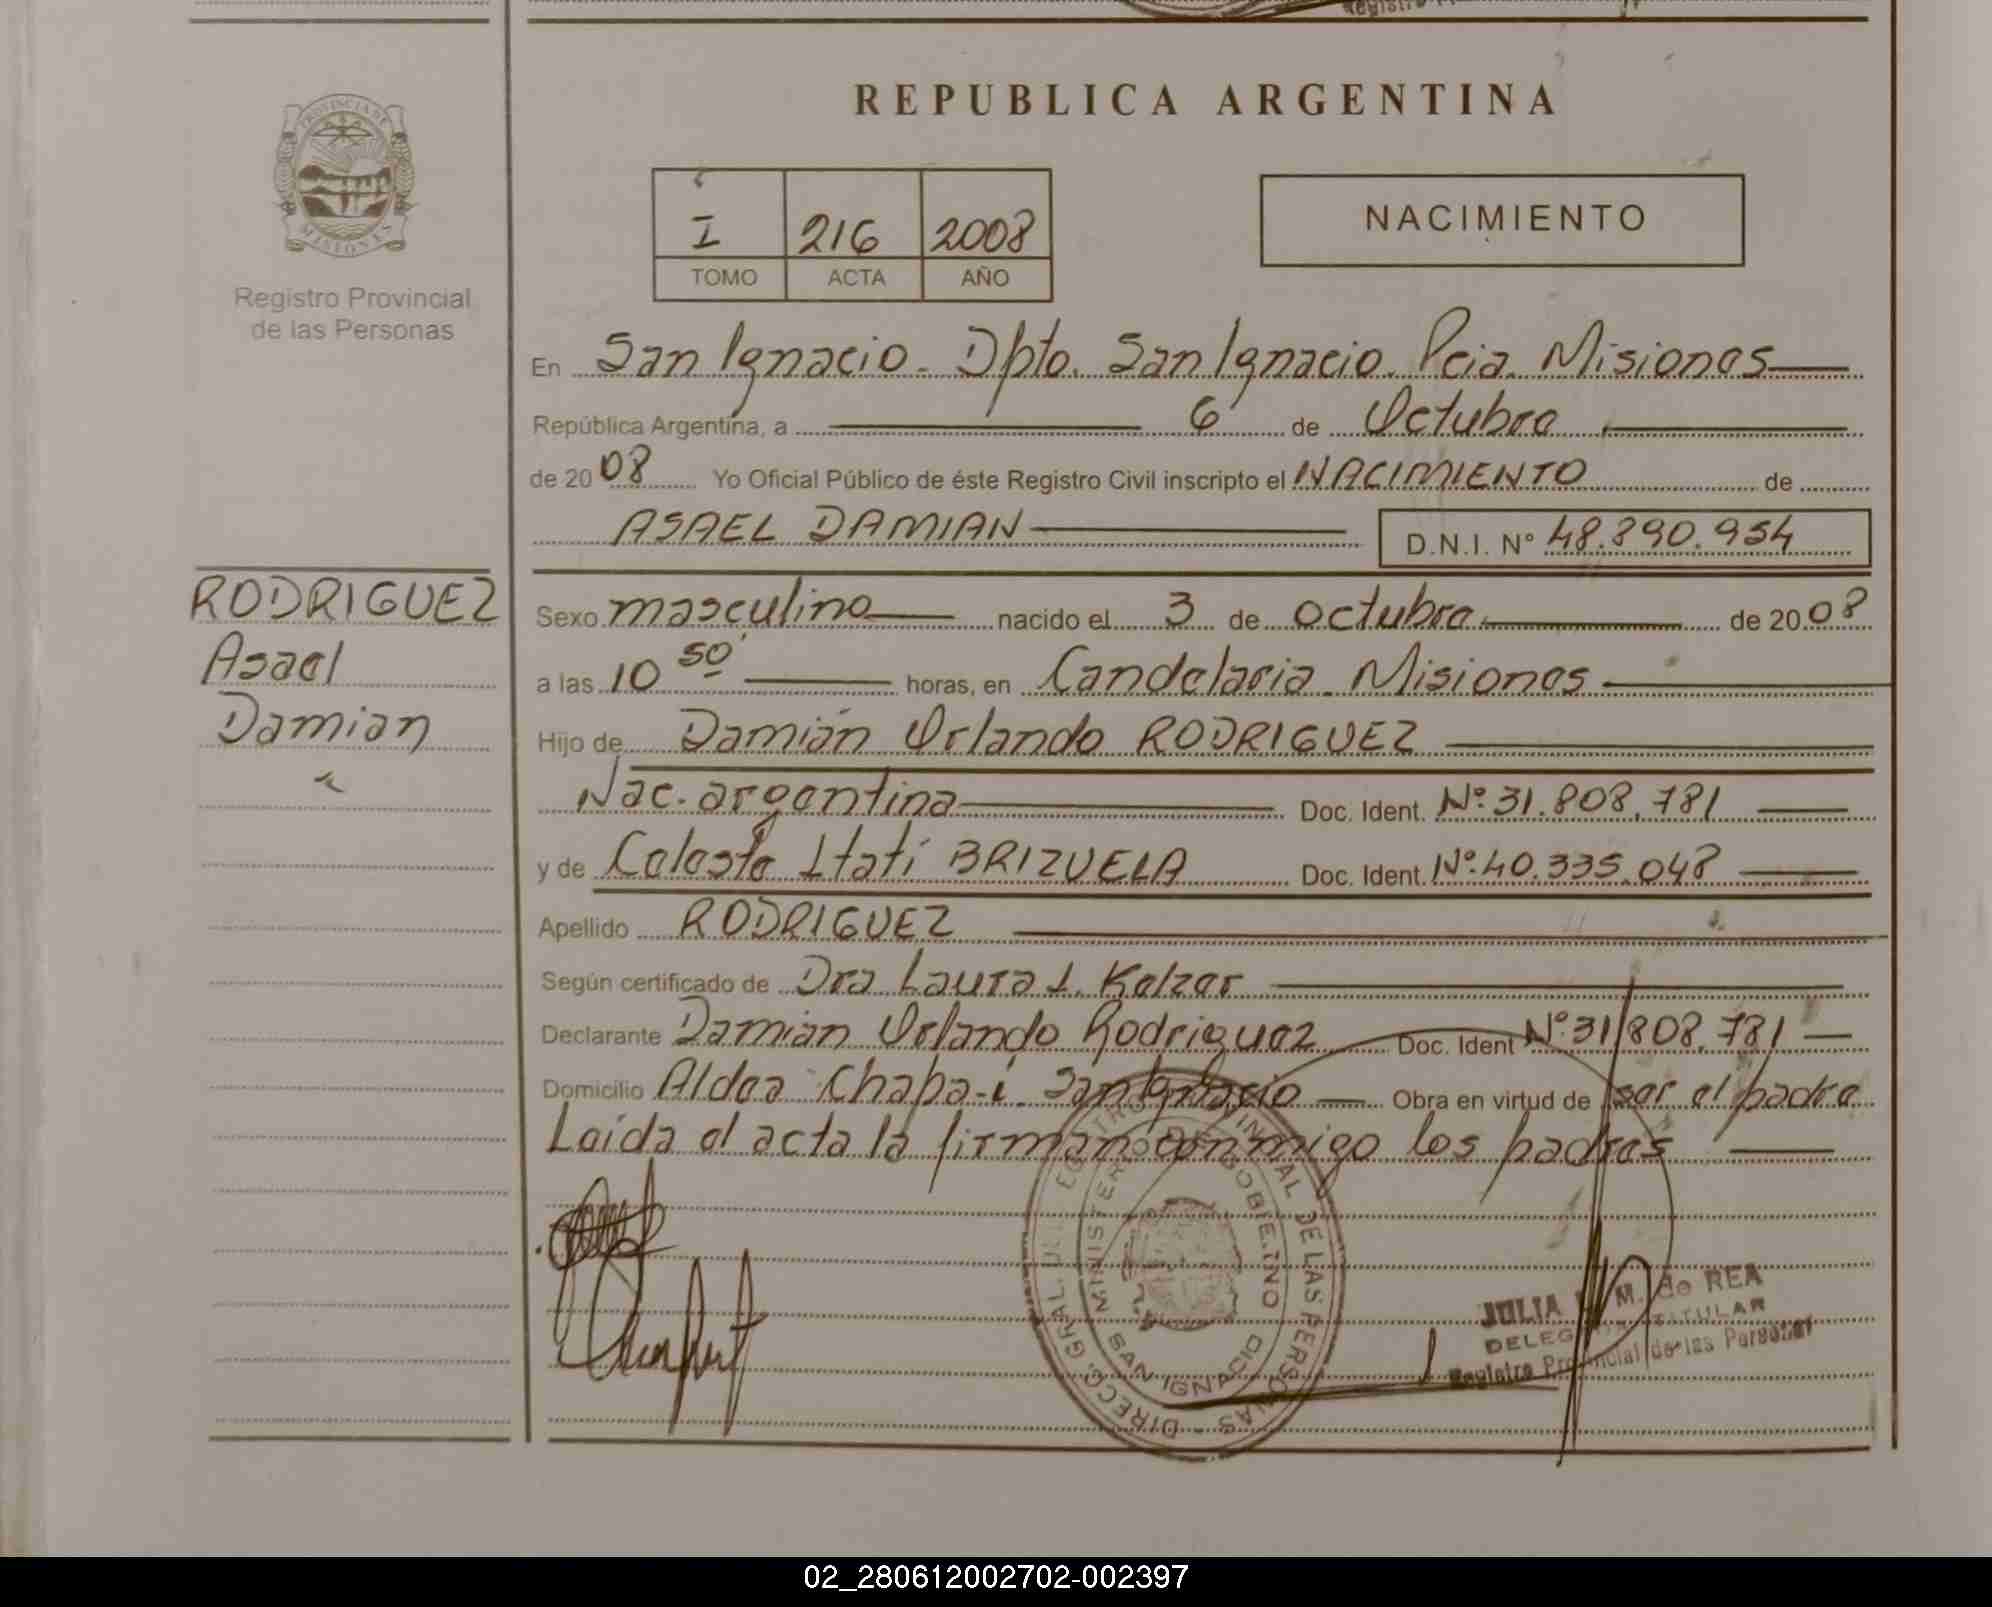 Registro
REPUBLICA ARGENTINA
PROVINCIA DE MISIONES
Registro Provincial
de las Personas
I 216 2008
TOMO ACTA AÑO
NACIMIENTO
En San Ignacio. Dpto. San Ignacio. Pcia. Misiones
República Argentina, a 6 de Octubre
de 2008 Yo Oficial Público de éste Registro Civil inscripto el NACIMIENTO de
ASAEL DAMIAN D.N.I. N° 48.390.954
RODRIGUEZ
Asael
Damian
Sexo masculino nacido el 3 de octubre de 2008
a las 10 50' horas, en Candelaria. Misiones
Hijo de Damián Orlando RODRIGUEZ
Nac. argentina Doc. Ident. Nº 31.808.781
y de Celeste Itatí BRIZUELA Doc. Ident. Nº 40.335.048
Apellido RODRIGUEZ
Según certificado de Dra Laura I. Kelzer
Declarante Damián Orlando Rodriguez Doc. Ident Nº 31.808.781
Domicilio Aldea Chapa-í San Ignacio Obra en virtud de ser el padre
Leída el acta la firman conmigo los padres
DIRECC. GRAL. DE LAS PERSONAS
MINISTERIO DE GOBIERNO
SAN IGNACIO
JULIA M. de REA
TITULAR
Registro Provincial de las Personas
02_280612002702-002397